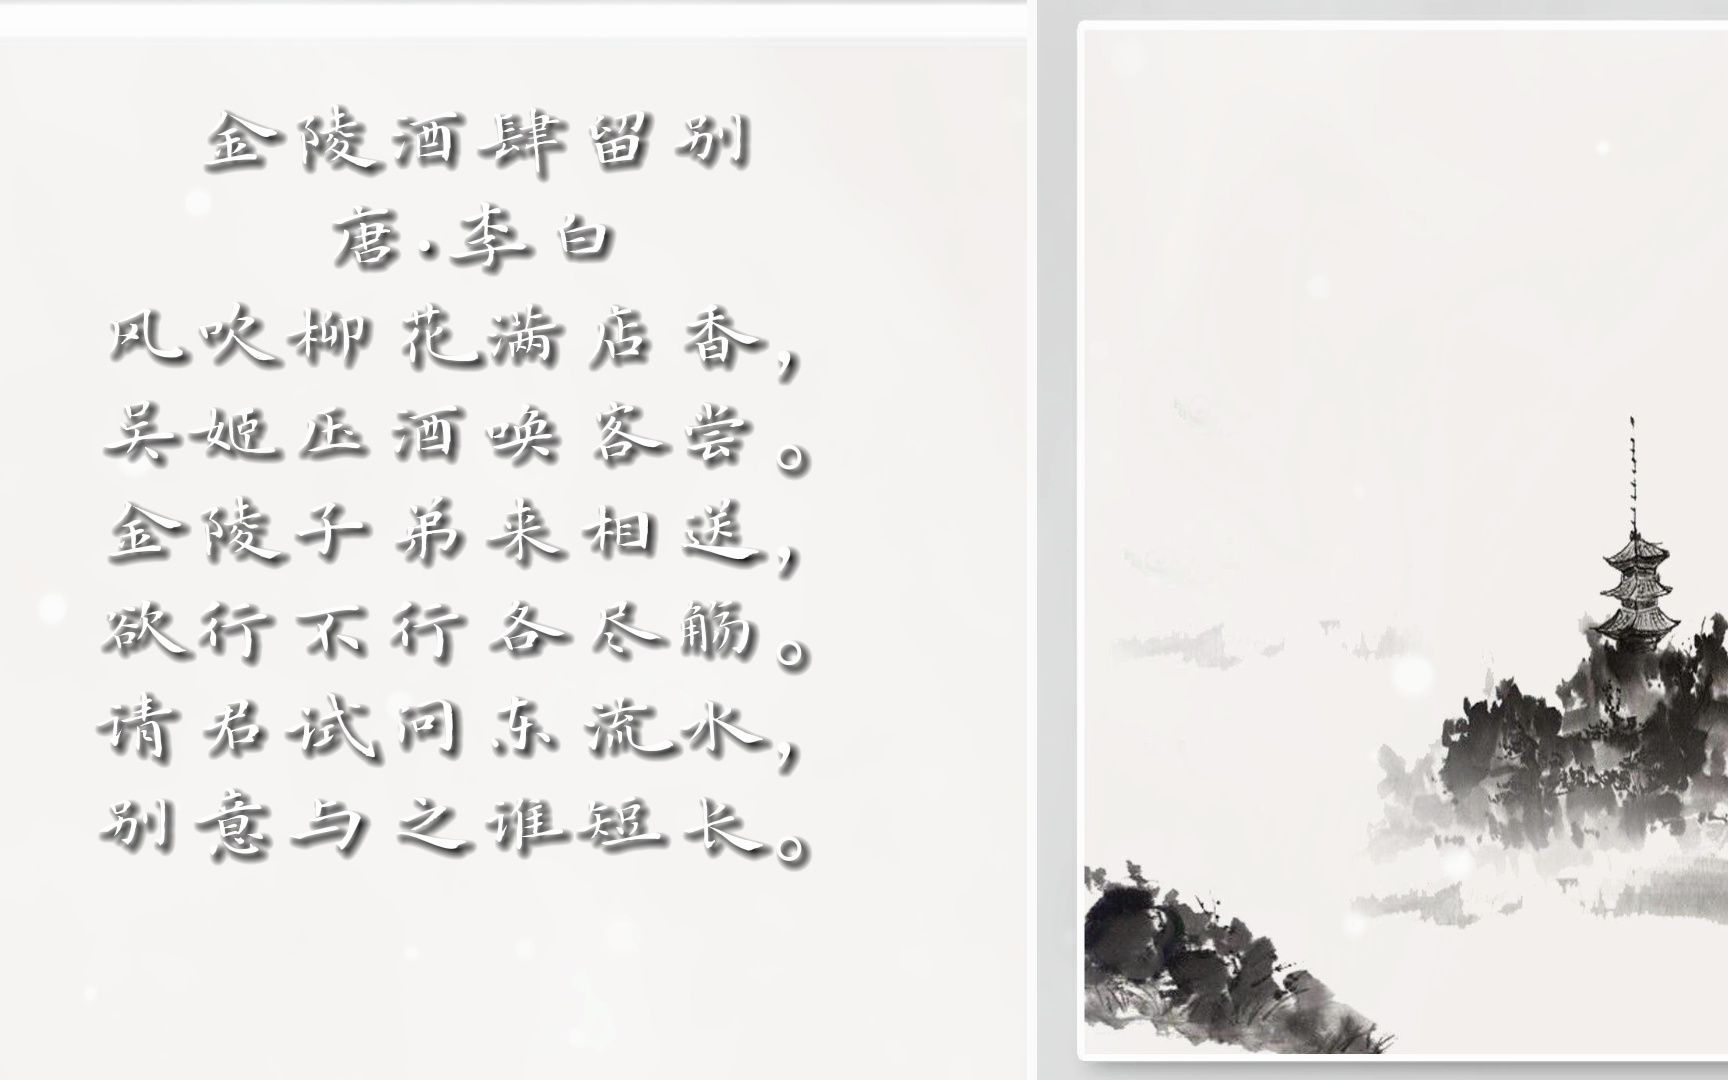 金陵酒肆留别
唐·李白
风吹柳花满店香，
吴姬压酒唤客尝。
金陵子弟来相送，
欲行不行各尽觞。
请君试问东流水，
别意与之谁短长。